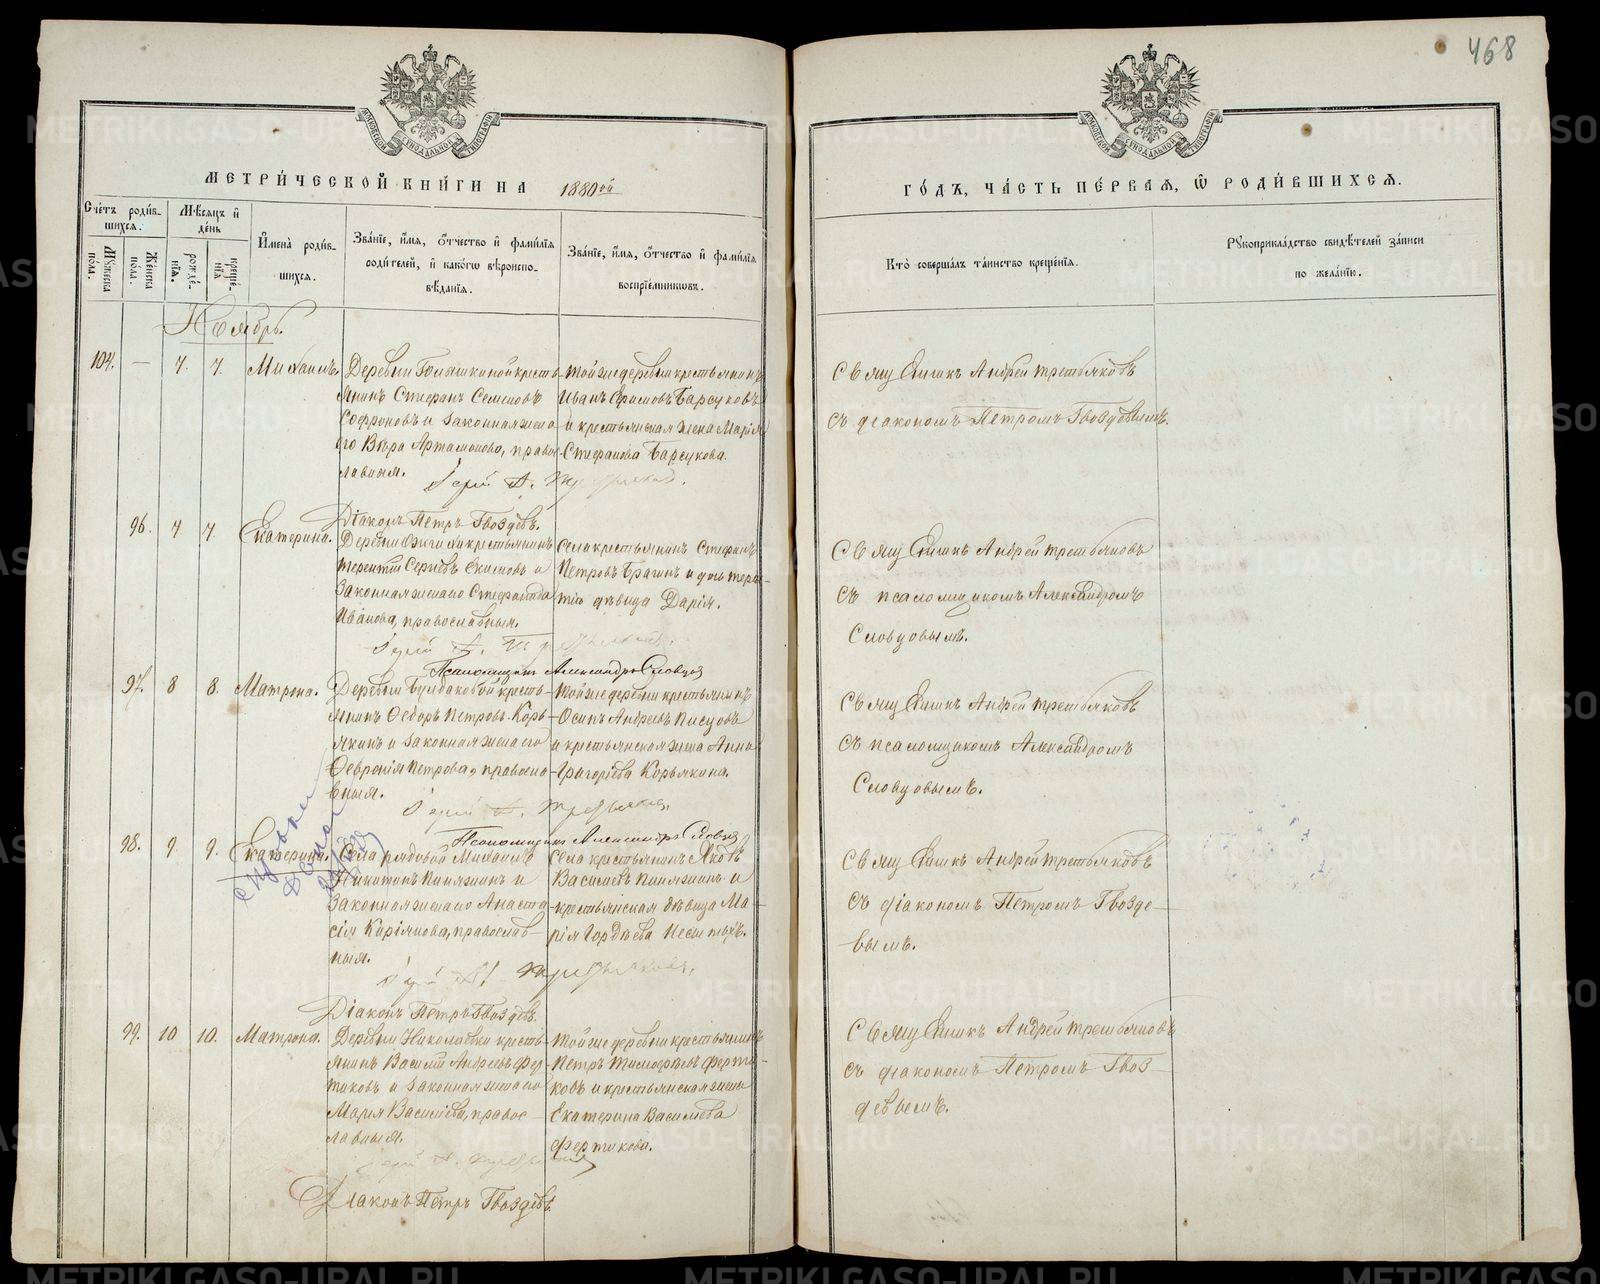 468
МЕТРИ́ЧЕСКОЙ КНИ́ГИ НА 1880ой
ГО́ДЪ, ЧА́СТЬ ПЕ́РВАЯ, Ѿ РОДИ́ВШИХСЯ.
Сче́тъ роди́в-
шихся.
Му́жеска по́ла.
Же́нска по́ла.
Мѣ́сяцъ и де́нь
рожде́-
нїя.
креще́-
нїя
И҆мена̀ роди́в-
шихся.
Зва́нїе, и҆́мя, о҆́тчество и҆ фами́лїя
роди́телей, и҆ како́гѡ вѣроиспо-
вѣ́данїя.
Зва́нїе, и҆́мя, о҆́тчество и҆ фами́лїя
воспрїе́мниковъ.
Кто̀ соверша́лъ та́инство креще́нїя.
Рꙋкоприкла́дство свидѣ́телей за́писи
по жела́нїю.
Ноябрь.
104. — 7. 7. Михаилъ.
Деревни крестъ-
янинъ Стефанъ Семеновъ
Софроновъ и законная жена
его Вѣра Артамонова, право-
славныя.
Тойже деревни крестьянинъ
Иванъ Ефимовъ Барсуковъ
и крестьянская жена Марія
Стефанова Барсукова.
Священникъ Андрей Третьяковъ
съ діакономъ Петромъ Гвоздевымъ.
Іерей А. Третьяковъ.
Діаконъ Петръ Гвоздевъ.
96. 7 7. Екатерина.
Деревни крестьянинъ
Терентій Сергѣевъ Екимовъ и
законная жена его Стефанида
Иванова, православныя.
Села крестьянинъ Стефанъ
Петровъ Брагинъ и дочь Терен-
тія дѣвица Дарія.
Священникъ Андрей Третьяковъ
съ псаломщикомъ Александромъ
Словцовымъ.
Іерей А. Третьяковъ.
Псаломщикъ Александръ Словцовъ
97. 8 8. Матрона.
Деревни Булдаковой кресть-
янинъ Ѳедоръ Петровъ Корь-
якинъ и законная жена его
Ѳевронія Петрова, правосла-
вныя.
Тойже деревни крестьянинъ
Осипъ Андреевъ Писцовъ
и крестьянская жена Анна
Григорьева Корьякина.
Священникъ Андрей Третьяковъ
съ псаломщикомъ Александромъ
Словцовымъ.
Іерей А. Третьяковъ.
Псаломщикъ Александръ Словцовъ
98. 9 9. Екатерина.
Села рядовой Михаилъ
и
законная жена его Анаста-
сія, православ-
ныя.
Села крестьянинъ Яковъ
Василіевъ и
крестьянская дѣвица Ма-
рія Гордѣева
Священникъ Андрей Третьяковъ
съ діакономъ Петромъ Гвозде-
вымъ.
Іерей А. Третьяковъ.
Діаконъ Петръ Гвоздевъ.
99. 10 10. Матрона.
Деревни Николаевки кресть-
янинъ Василій Андреевъ Фер-
тиковъ и законная жена его
Марія Василіева, правос-
лавныя.
Тойже деревни крестьянинъ
Петръ Тимофеевъ Ферти-
ковъ и крестьянская жена
Екатерина Василіева
Фертикова.
Священникъ Андрей Третьяковъ
съ діакономъ Петромъ Гвоз-
девымъ.
Діаконъ Петръ Гвоздевъ.
METRIKI.GASO-URAL.RU